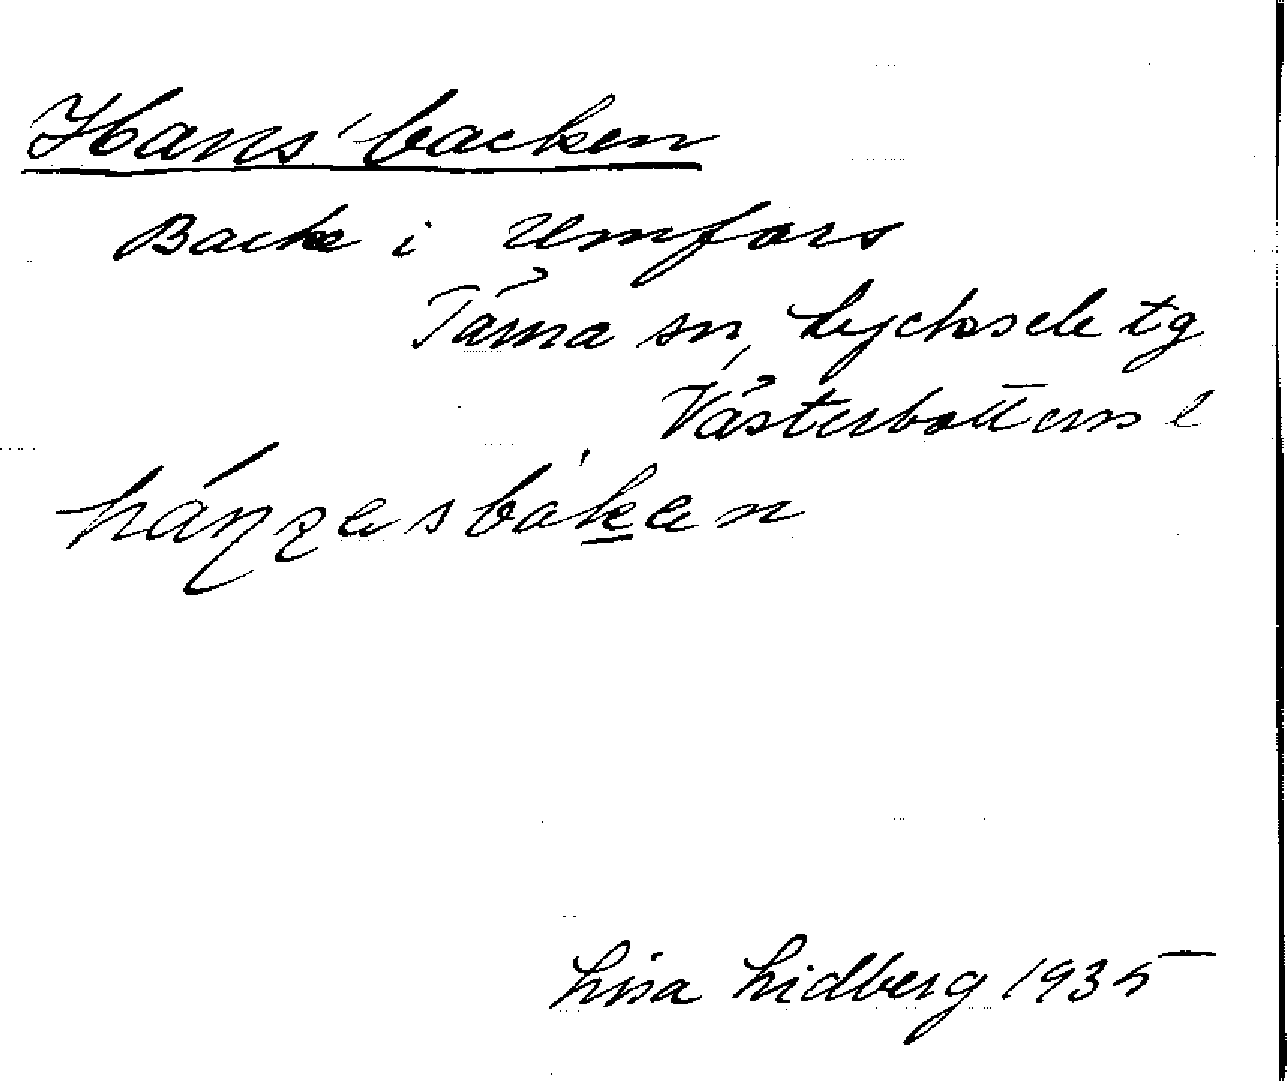 Hans' backen
Backe i Umfors
Tärna sn, Lycksele tg
Västerbottens l
Lisa Lidberg 1935